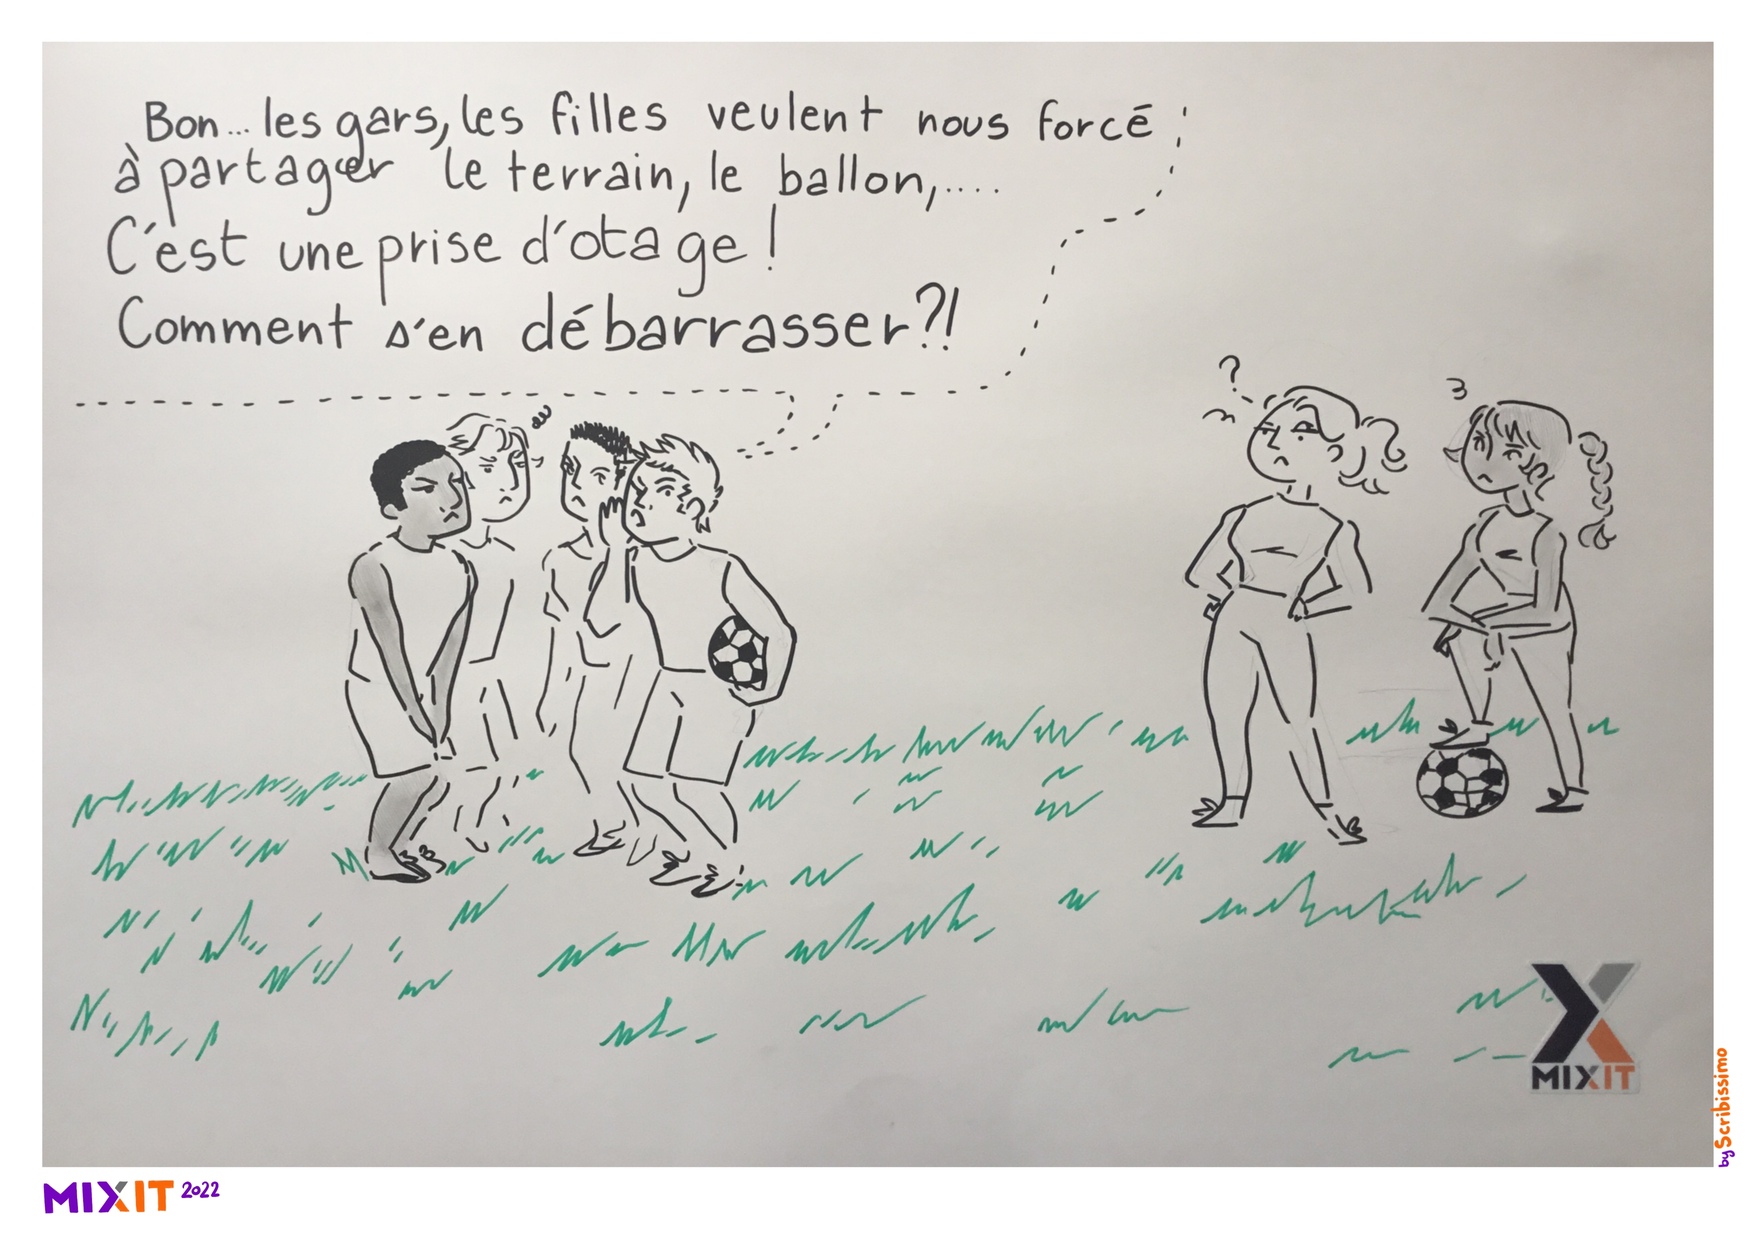 Bon... les gars, les filles veulent nous forcé
à partager le terrain, le ballon,....
C'est une prise d'otage !
Comment s'en débarrasser ?!
?
MIXIT
by Scribissimo
MIXIT 2022